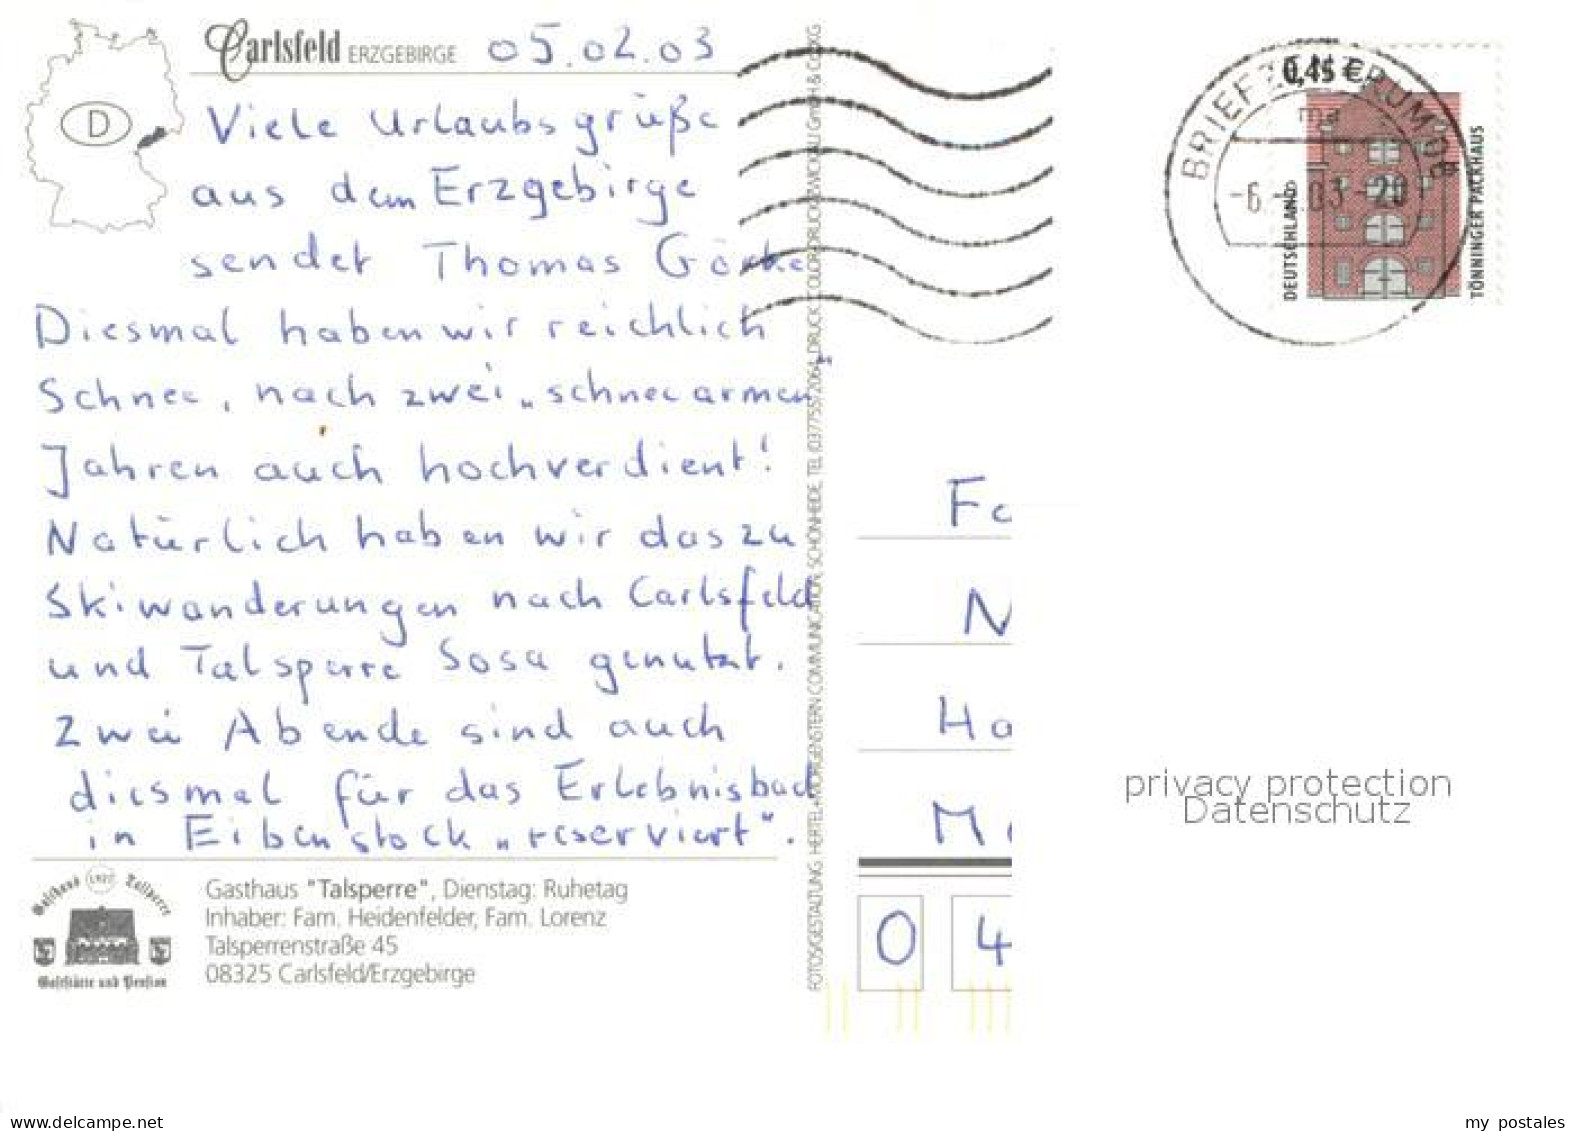 Carlsfeld ERZGEBIRGE 05.02.03
D
Viele Urlaubsgrüße
aus dem Erzgebirge
sendet Thomas
Diesmal haben wir reichlich
Schnee, nach zwei „schneearmen"
Jahren auch hochverdient!
Natürlich haben wir das zu
Skiwanderungen nach Carlsfeld
und Talsperre Sosa genutzt.
Zwei Abende sind auch
diesmal für das Erlebnisbad
in Eibenstock „reserviert".
Gasthaus Talsperre
1927
Gaststätte und Pension
Gasthaus "Talsperre", Dienstag: Ruhetag
Inhaber: Fam. Heidenfelder, Fam. Lorenz
Talsperrenstraße 45
08325 Carlsfeld/Erzgebirge
FOTOS/GESTALTUNG: HERTEL+MORGENSTERN COMMUNICATION, SCHÖNHEIDE, TEL. (037755) DRUCK: COLOR-DRUCK ZWICKAU GmbH & Co. KG
BRIEFZENTRUM 08
ma
-6.-2.03-20
0,45 €
DEUTSCHLAND
TÖNNINGER PACKHAUS
Fa
N
Ha
M
0 4
privacy protection
Datenschutz
www.delcampe.net
my postales